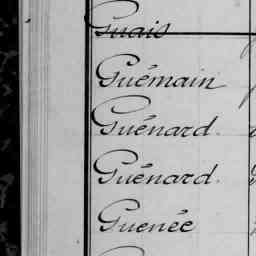 Guais
Guémain
Guénard.
Guénard.
Guenée